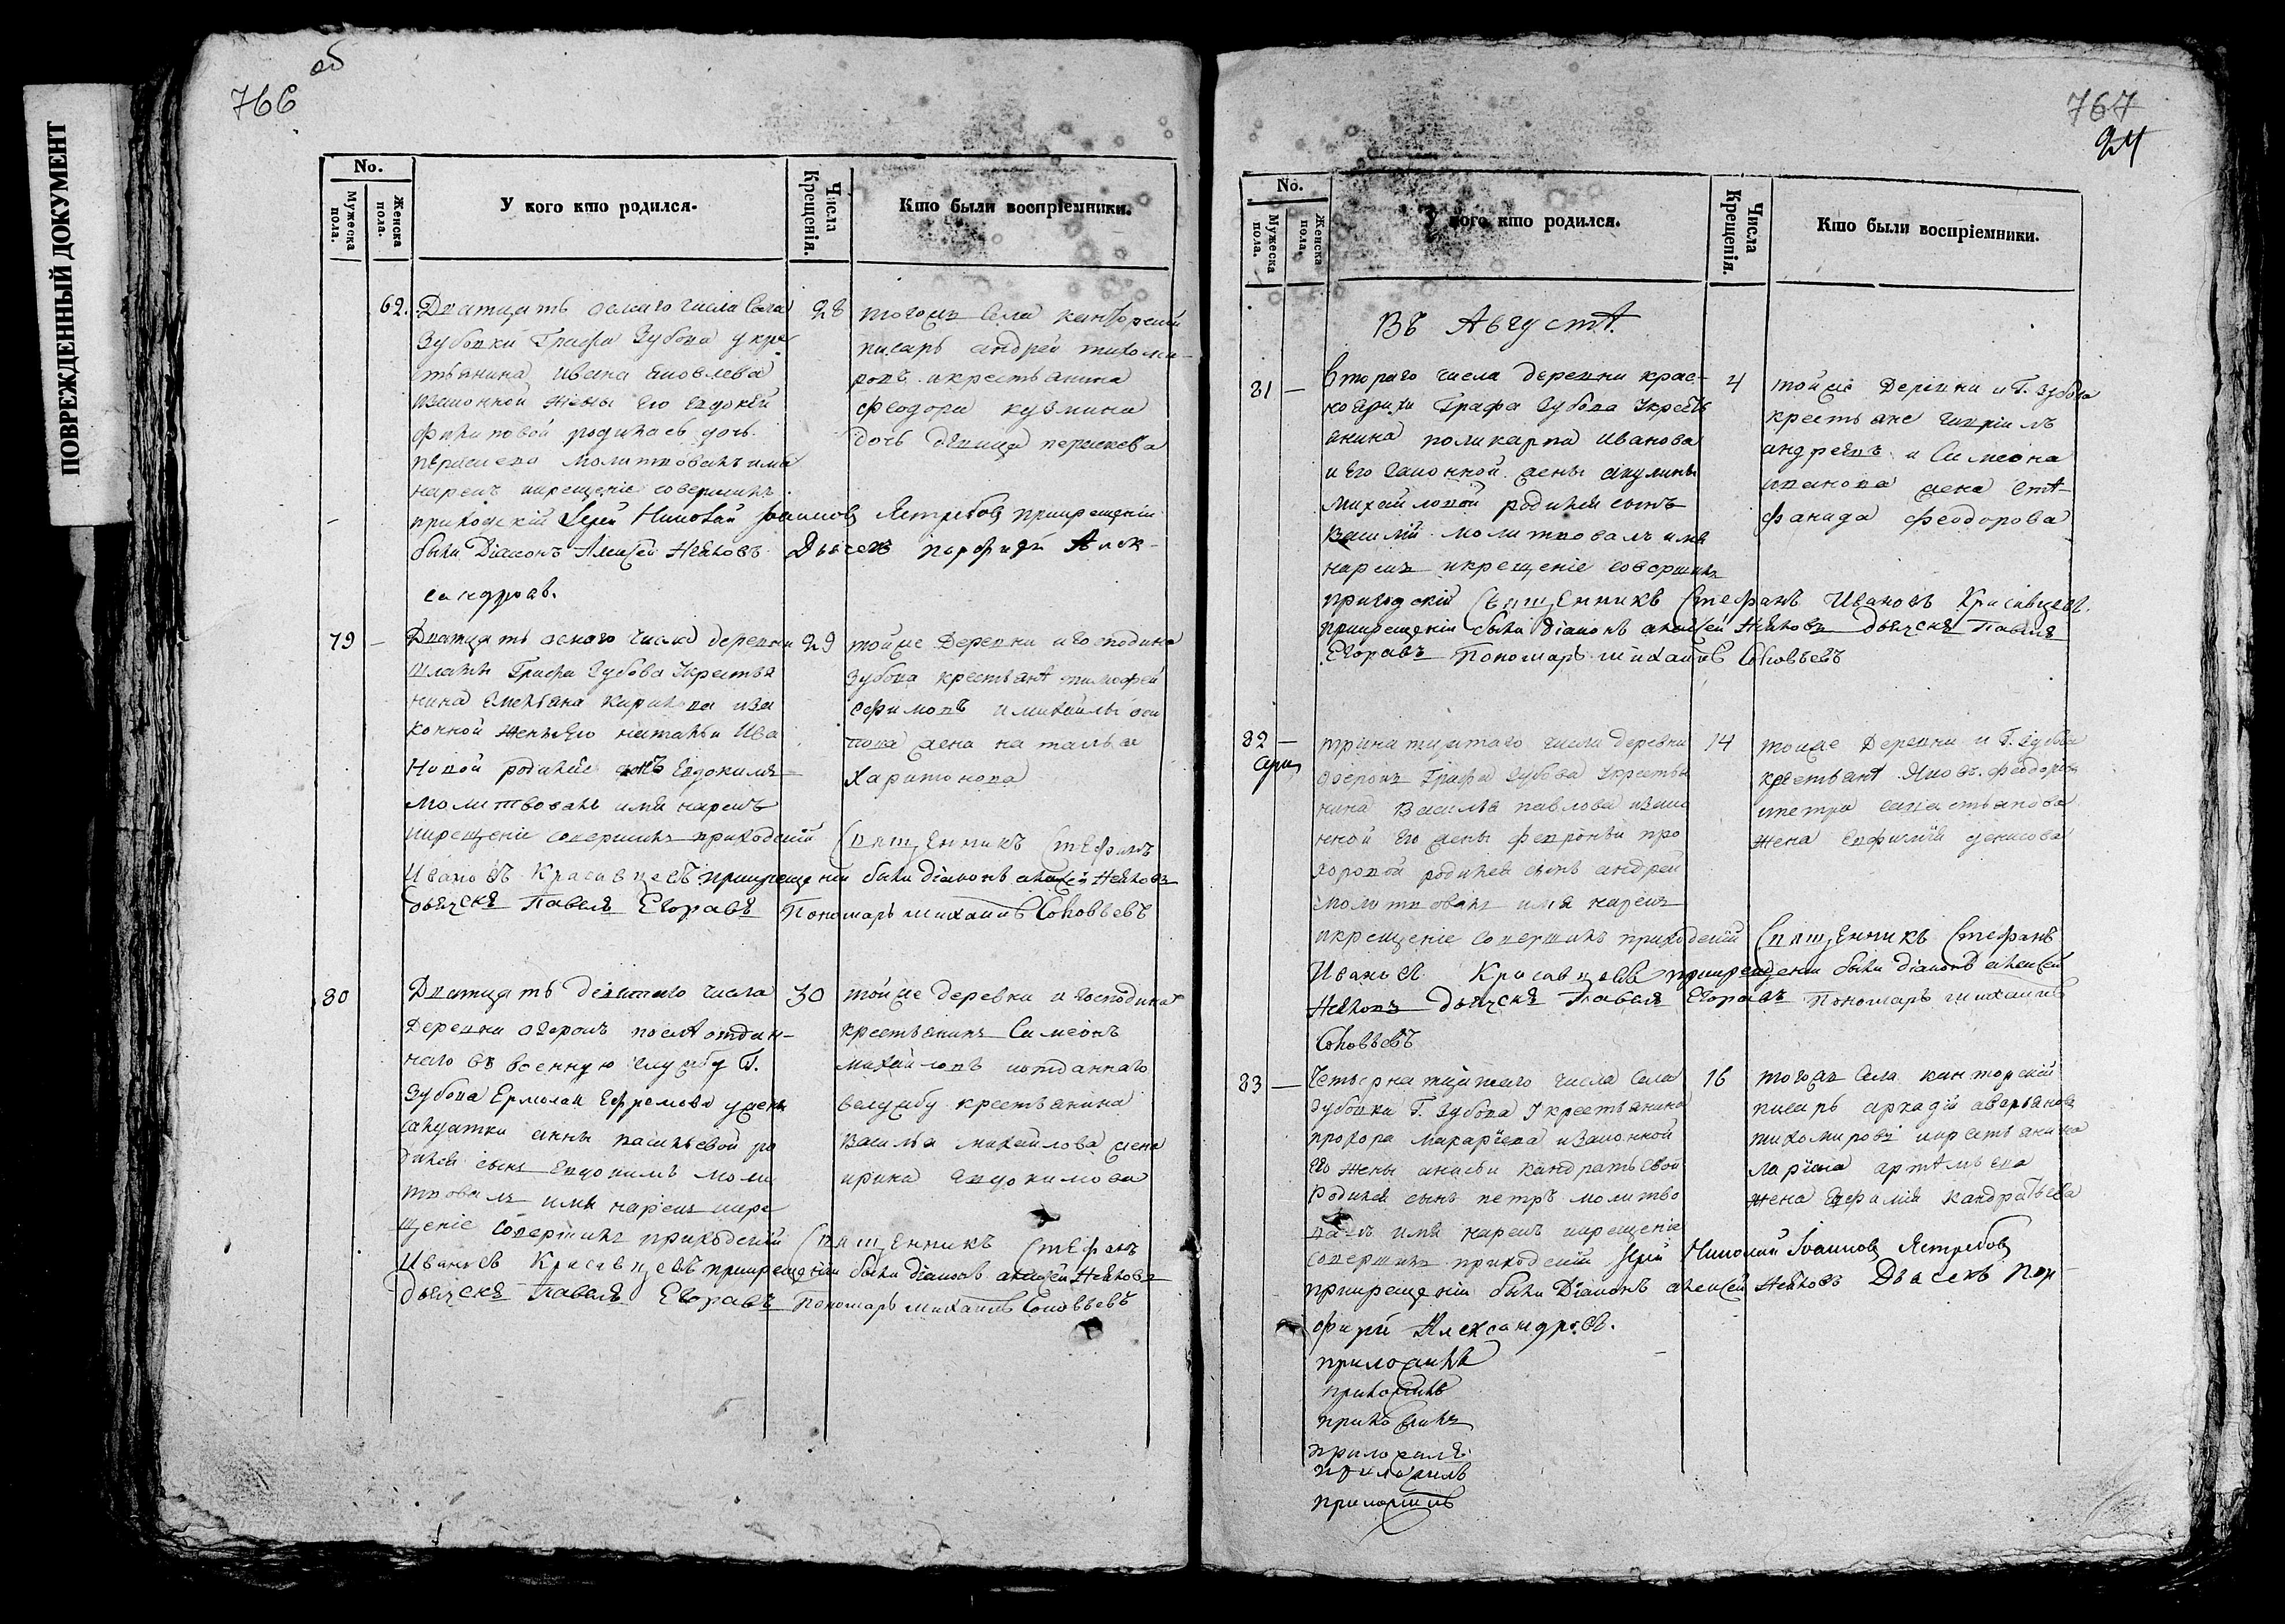 ПОВРЕЖДЕННЫЙ ДОКУМЕНТ
об
766
No.
Мужеска пола.
Женска пола.
У кого кто родился.
Числа Крещенія.
Кто были воспріемники.
62.
Дватцать осмаго числа Села
Зубовки Графа Зубова у кре
стьянина Ивана Яковлева
изаконной жены его Евдокеи
Филиповой родилась дочь
Параскева молитвовалъ имя
нарекъ икрещеніе совершилъ
приходскій Іерей Николай Іоанновъ Ястребовъ прикрещеніи
были Діаконъ Алексей Неяловъ Дьячекъ Порфирй Алек-
сандров.
28
тогожъ Села канторскій
писарь андрей тихоми-
ровъ икрестьянина
Феодора кузмина
дочь девица параскева
79 —
Дватцать осмаго числа деревни
Графа Зубова Укрестья
нина Емельяна Кирилова иза
конной жены его натальи Ива
новой родился сынъ Евдокимъ
молитвовалъ имя нарекъ
икрещеніе совершилъ приходскій Священникъ Стефанъ
Ивановъ Красавцевъ прикрещеніи были діаконъ алексей Неяловъ
дьячекъ Павелъ Егоравъ Пономарь михаилъ Соловьевъ
29
тойже Деревни игосподина
Зубова крестьянѣ тимофей
ефимовъ и михайлы оси
пова жена наталья
Харитонова
80
Дватцать девятаго числа
деревни озерокъ послѣ отдан-
наго въ военную службу Г.
Зубова Ермолая Ефремова у жены
салдатки анны васильевой ро
дился сынъ Евдокимъ моли
твовалъ имя нарекъ икре
щеніе совершилъ приходскій Священникъ Стефанъ
Ивановъ Красавцевъ прикрещеніи были діаконъ алексей Неяловъ
дьячекъ Павелъ Егоравъ Пономарь михаилъ Соловьевъ
30
тойже деревни и господина
крестьянинъ Симеонъ
михайловъ иотданнаго
вслужбу крестьянина
Василья михайлова жена
ирина Евдокимова
767
24
No.
Мужеска пола.
Женска пола.
У кого кто родился.
Числа Крещенія.
Кто были воспріемники.
Въ Августѣ
81 —
втораго числа деревни крас-
Графа Зубова Укресть
янина поликарпа Иванова
и его законной жены акулины
михайловой родился сынъ
Василій молитвовалъ имя
нарекъ икрещеніе совершилъ
приходскій Священникъ Стефанъ Ивановъ Красавцевъ.
прикрещеніи были діаконъ алексей Неяловъ дьячекъ Павелъ
Егоравъ Пономарь михаилъ Соловьевъ
4
тойже Деревни и Г. Зубова
крестьяне гавріилъ
андреевъ и Симеона
иванова жена Стѣ-
фанида Феодорова
82 —
тринатцатаго числа деревни
озерокъ Графа Зубова укрестья
нина Василья павлова изако
нной его жены февроньи про
хоровой родился сынъ андрей
молитвовалъ имя нарекъ
икрещеніе совершилъ приходскій Священникъ Стефанъ
Ивановъ Красавцевъ прикрещеніи были діаконъ алексей
Неяловъ дьячекъ Павелъ Егоравъ Пономарь михаилъ
Соловьевъ
14
тойже Деревни и Г. Зубова
крестьянѣ Яковъ феодоровъ
ипетра севастьянова
жена Евфимія денисова
83 —
Четырнатцатаго числа Села
Зубовки Г. Зубова Укрестьянина
прохора макаріева изаконной
его жены анисьи кандратьевой
родился сынъ петръ молитво
валъ имя нарекъ икрещеніе
совершилъ приходскій Іерей Николай Іоанновъ Ястребовъ
прикрещеніи были Діаконъ алексей Неяловъ Дьячекъ Пор-
фирй Александровъ.
16
тогожъ Села канторскій
писарь аркадій аверьяновъ
тихомировъ икрестьянина
лариона артѣмьева
жена Евфимія Кандратьева
приложилъ
приложилъ
приложилъ
приложилъ
приложилъ
приложилъ